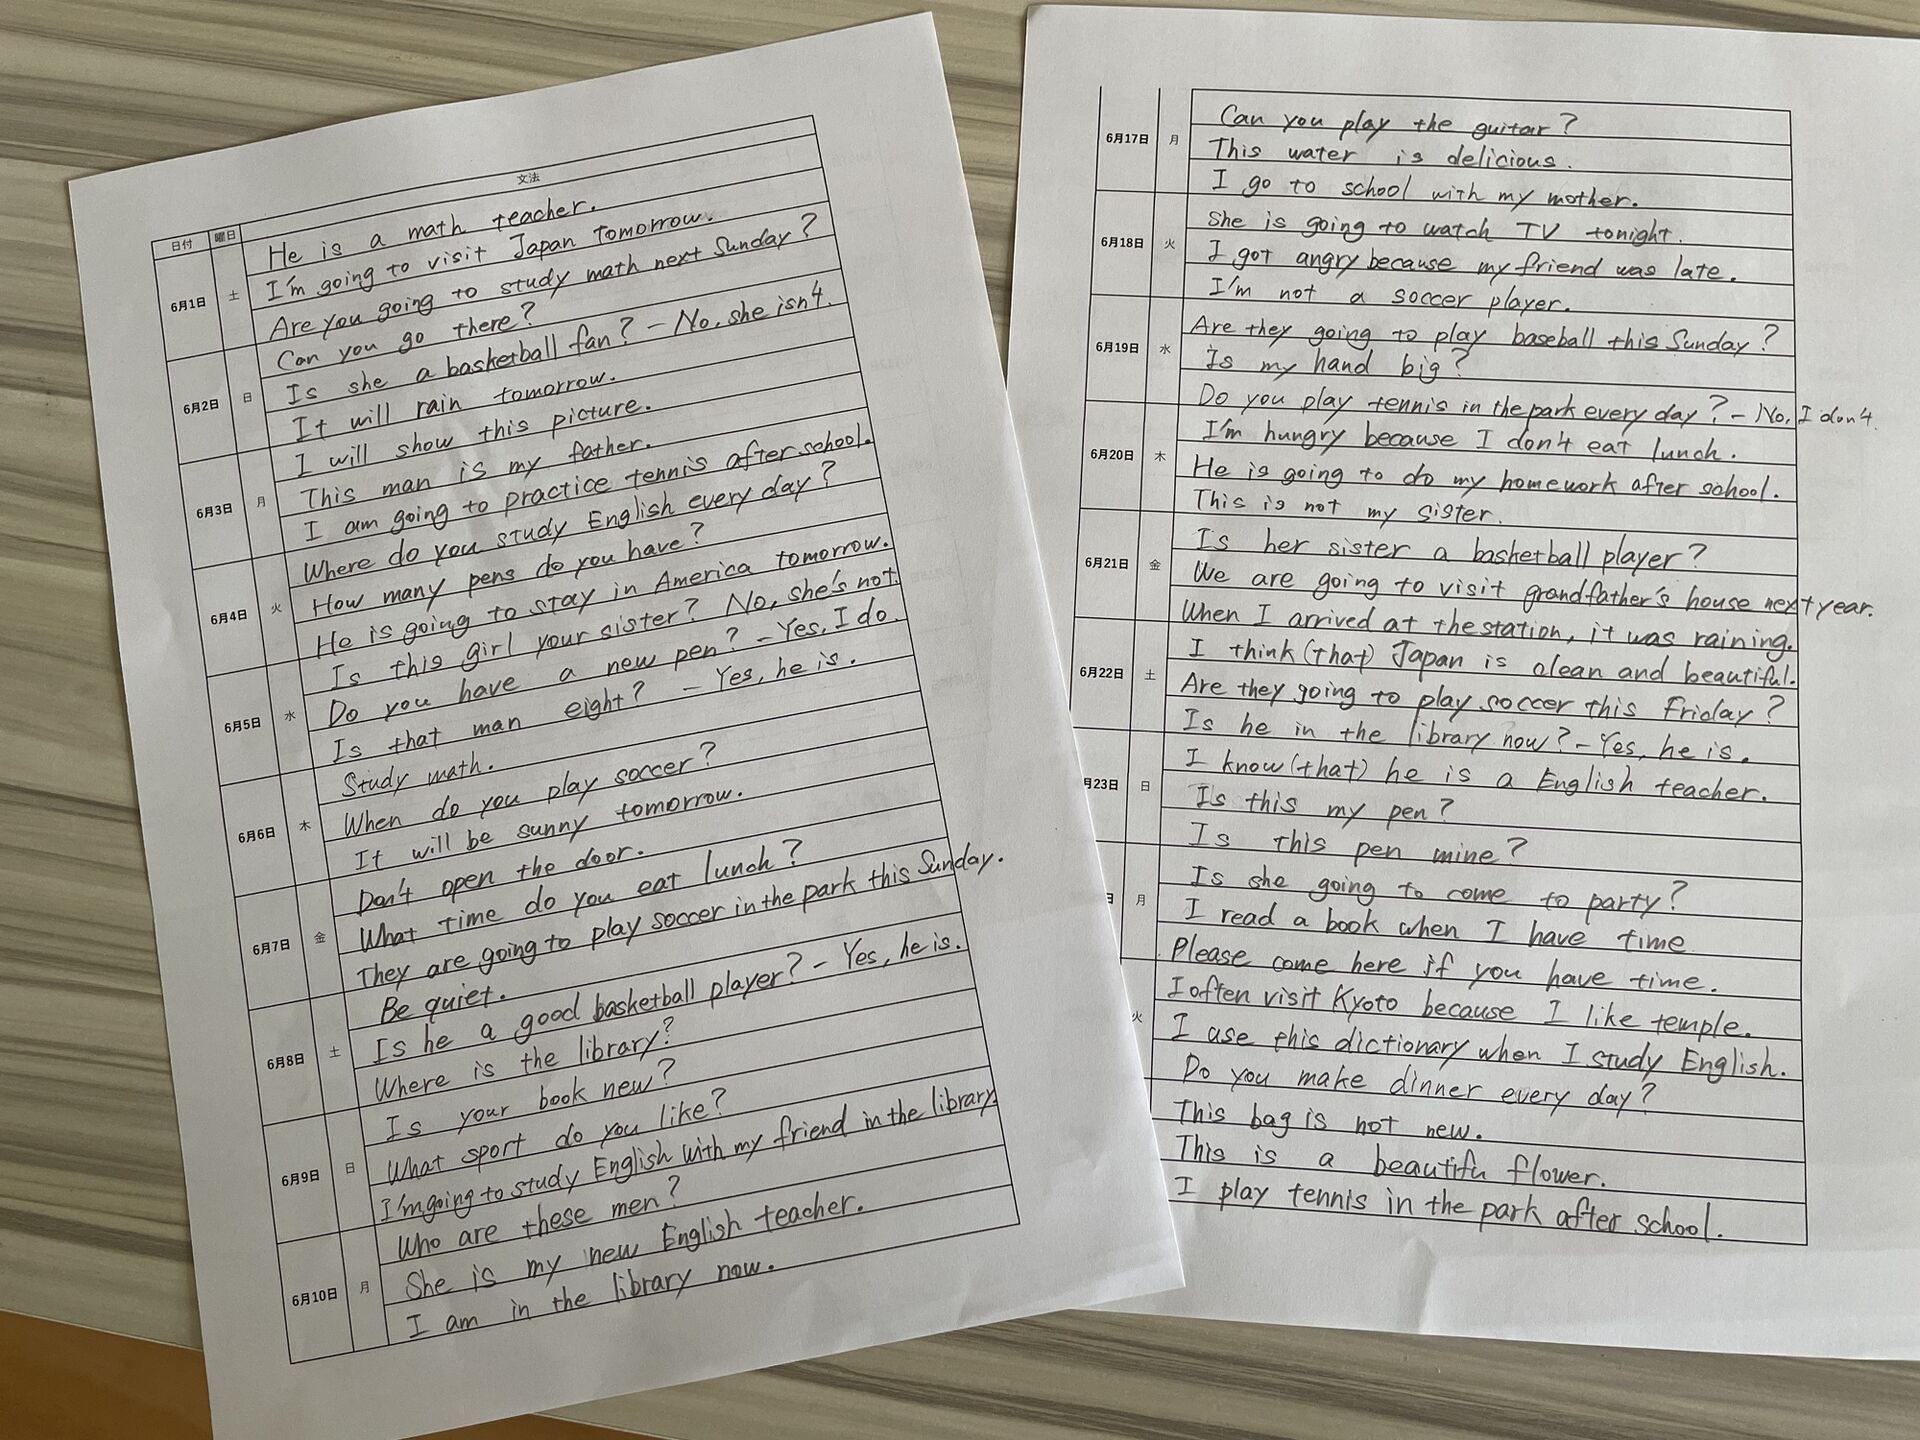 文法
日付 曜日
6月1日 土
He is a math teacher.
I'm going to visit Japan tomorrow.
Are you going to study math next Sunday?
6月2日 日
Can you go there?
Is she a basketball fan? - No, she isn't.
It will rain tomorrow.
6月3日 月
I will show this picture.
This man is my father.
I am going to practice tennis after school.
6月4日 火
Where do you study English every day?
How many pens do you have?
He is going to stay in America tomorrow.
6月5日 水
Is this girl your sister? No, she's not.
Do you have a new pen? - Yes, I do.
Is that man eight? - Yes, he is.
6月6日 木
Study math.
When do you play soccer?
It will be sunny tomorrow.
6月7日 金
Don't open the door.
What time do you eat lunch?
They are going to play soccer in the park this Sunday.
6月8日 土
Be quiet.
Is he a good basketball player? - Yes, he is.
Where is the library?
6月9日 日
Is your book new?
What sport do you like?
I'm going to study English with my friend in the library.
6月10日 月
Who are these men?
She is my new English teacher.
I am in the library now.
6月17日 月
Can you play the guitar?
This water is delicious.
I go to school with my mother.
6月18日 火
she is going to watch TV tonight.
I got angry because my friend was late.
I'm not a soccer player.
6月19日 水
Are they going to play baseball this Sunday?
Is my hand big?
Do you play tennis in the park every day? - No, I don't.
6月20日 木
I'm hungry because I don't eat lunch.
He is going to do my homework after school.
This is not my sister.
6月21日 金
Is her sister a basketball player?
We are going to visit grandfather's house next year.
When I arrived at the station, it was raining.
6月22日 土
I think (that) Japan is clean and beautiful.
Are they going to play soccer this Friday?
Is he in the library now? - Yes, he is.
月23日 日
I know (that) he is a English teacher.
Is this my pen?
Is this pen mine?
月
Is she going to come to party?
I read a book when I have time
Please come here if you have time.
火
I often visit Kyoto because I like temple.
I use this dictionary when I study English.
Do you make dinner every day?
This bag is not new.
This is a beautifu flower.
I play tennis in the park after school.